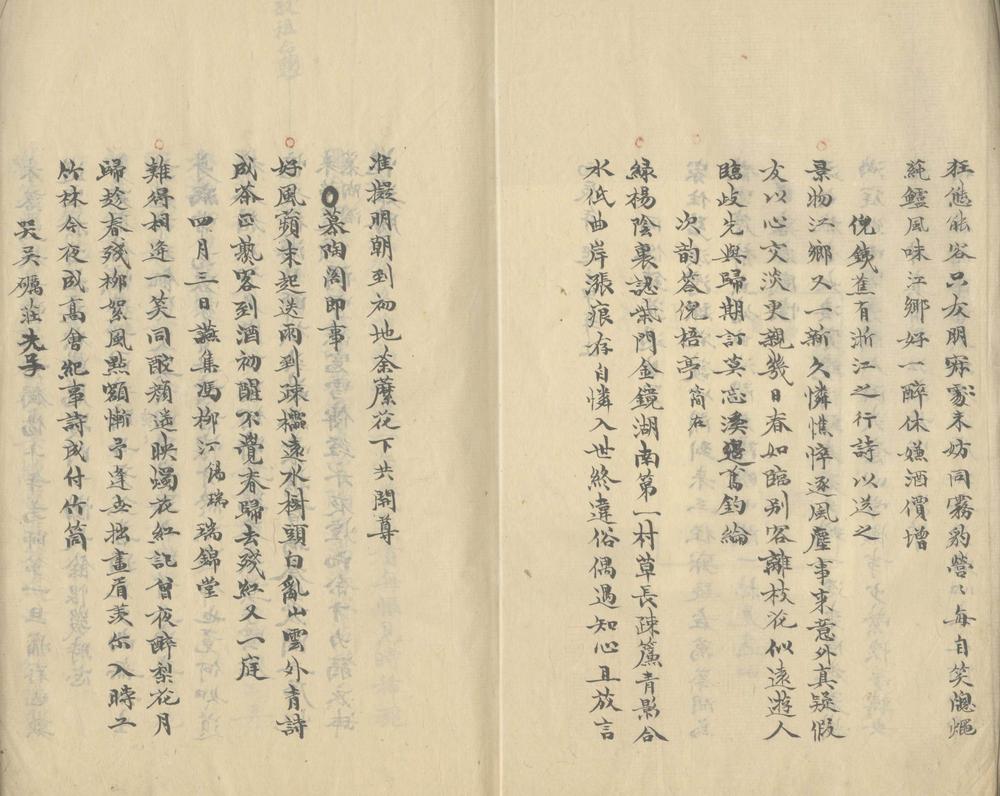 狂態能容只友朋寐寥未妨同霧豹營〻每自笑牕蠅
蒓鱸風味江鄉好一醉休嫌酒價增
倪鐵蕉有浙江之行詩以送之
景物江鄉又一新久憐憔悴逐風塵事來意外真疑假
友以心交淡更親幾日春如臨別客離枝花似遠遊人
臨歧先與歸期訂莫忘溪邊舊釣綸
次韵答倪梧亭
綠楊陰裏認柴門金鏡湖南第一村草長疎簾青影合
水低曲岸漲痕存自憐入世終違俗偶遇知心且放言
准擬明朝到初地荼蘼花下共開尊
慕陶閣即事
好風蘋末起送雨到疎櫺遠水樹頭白亂山雲外青詩
成茶正熟客到酒初醒不覺春歸去殘紅又一庭
四月三日讌集馮柳汀錫瑞瑞錦堂
難得相逢一笑同酡顏遙映燭花紅記曾夜醉梨花月
歸趁春殘柳絮風點額慚予逢世拙畫眉羡尔入時工
竹林今夜成高會紀事詩成付竹筒
哭吳礪莊先